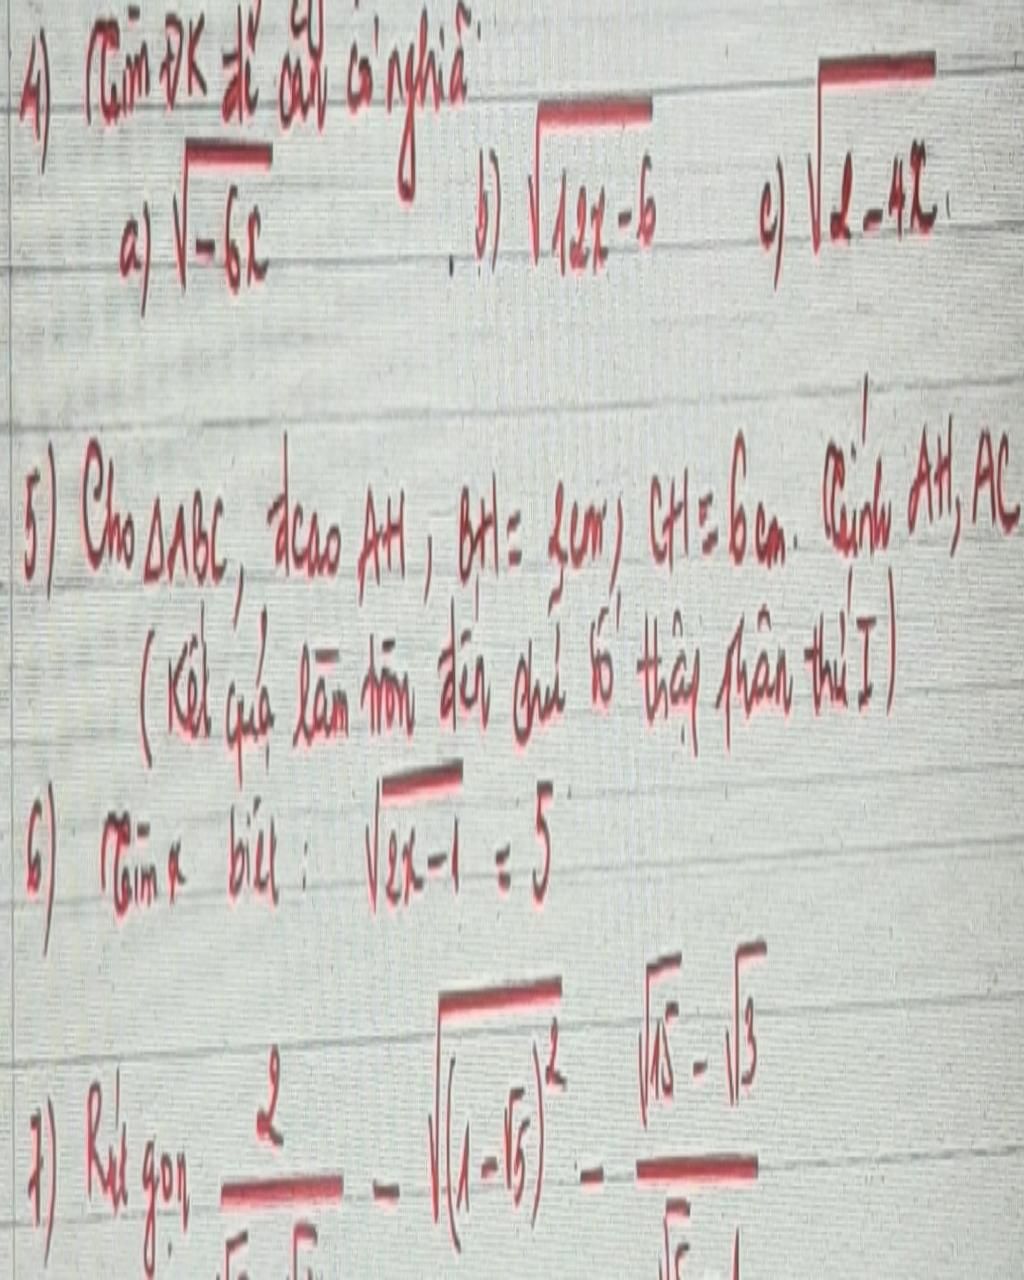 4) Tìm ĐK để căn có nghĩa
a) √(-6x) b) √(12x-6) c) √(2-4x).
5) Cho ΔABC, đcao AH, BH = 2cm, CH = 6cm. Tính AH, AC
(Kết quả làm tròn đến chữ số thập phân thứ I)
6) Tìm x biết: √(2x-1) = 5
7) Rút gọn 2/ - √((1-√5)²) - (√15-√3)/